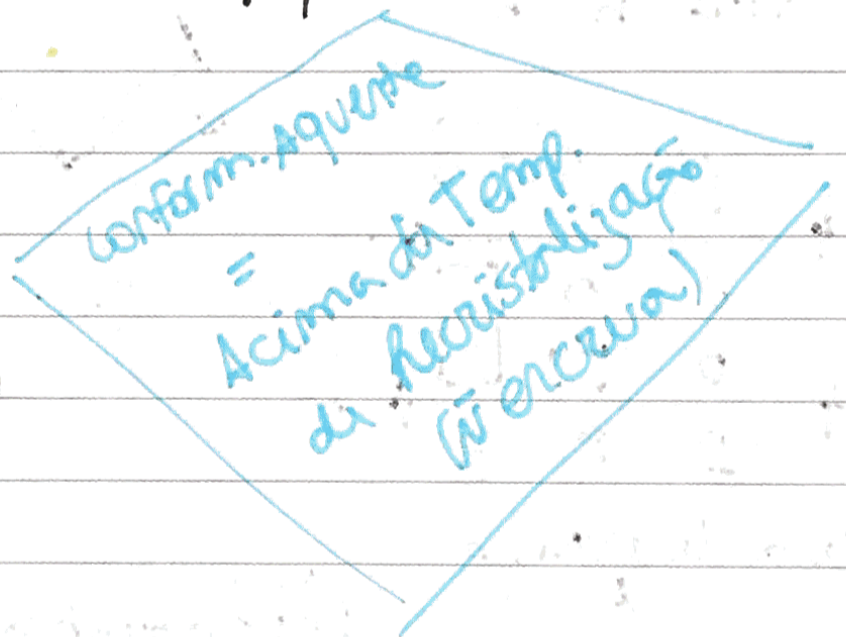 conform. Aquente
=
Acima da Temp.
de Recristalização
(Ñ encrua)